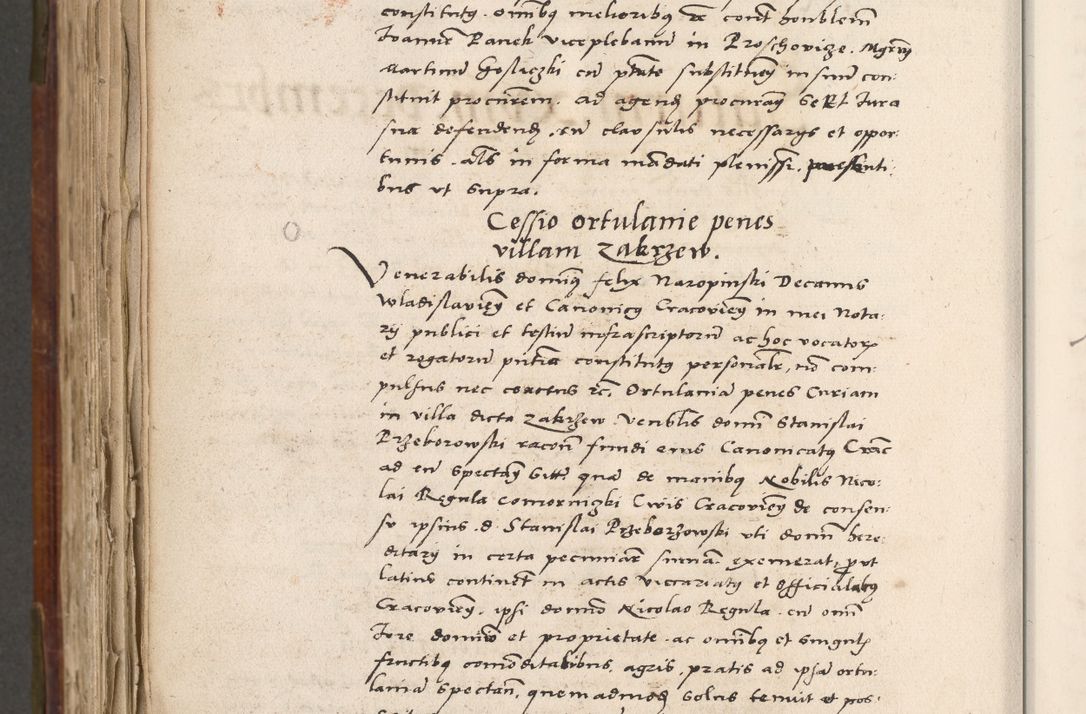 constitutꝫ. omībꝫ melioribꝫ ꝛc cont̄ honblem̄
Joannē Panek viceplebanū in Proschovicze. Mgrm̄
Martinū Gosliczki cū ptāte substituēn in suū con:
stituit procurem̄. ad agend̄ procurand̄ Sett Jura
sua defendend̄, cū clausulis necessarys et oppor:
tunis. als in forma mādati plenissi. presenti:
bus vt supra.
Cessio ortulanie penes
villam Zakrzew.
Venerabilis dominꝫ felix Naropinski Decanus
Wladislavieñ et Canonicꝫ Cracovieñ in mei Nota:
rij publici et testiū infrascriptorū ad hoc vocatoꝝ
et rogatorū pn̄tia constitutꝫ personalr̄, nō com:
pulsus nec coactus ꝛc. Ortulaniā penes Curiam
in villa dicta Zakrzew. Venblis domī Stanislai
Przeborowski racon̄ fundi eius Canonicatꝫ Crac̄
ad eū Spectan̄ Sitt̄ quā de manibꝫ Nobilis Nico:
lai Regula Comorniczki Civis Cracovieñ de consen:
su ipsius d. Stanislai Przeborzowski vti domī here:
ditary in certa pecuniar̄ sum̄a exemerat, ꝓut
latius continet̄ in actis viccariatꝫ et Officialatꝫ
Cracovieñ. ipsi domino Nicolao Regula. cū omī
Jure dominio et proprietate. ac omībꝫ et singul̄
fructibꝫ comōditatibus, agris, pratis ad ipsā ortu:
laniā Spectan̄, quemadmod̄ Solus tenuit et pos: